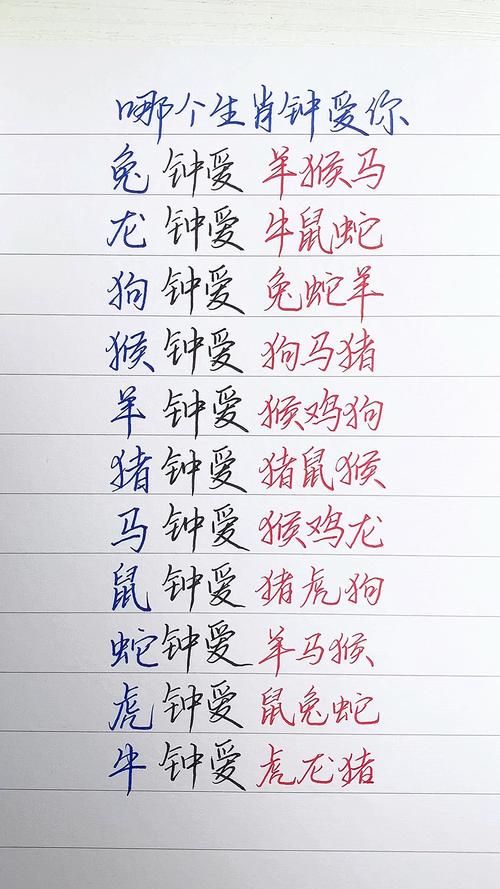 哪个生肖钟爱你
兔 钟爱 羊猴马
龙 钟爱 牛鼠蛇
狗 钟爱 兔蛇羊
猴 钟爱 狗马猪
羊 钟爱 猴鸡狗
猪 钟爱 猪鼠猴
马 钟爱 猴鸡龙
鼠 钟爱 猪虎狗
蛇 钟爱 羊马猴
虎 钟爱 鼠兔蛇
牛 钟爱 虎龙猪